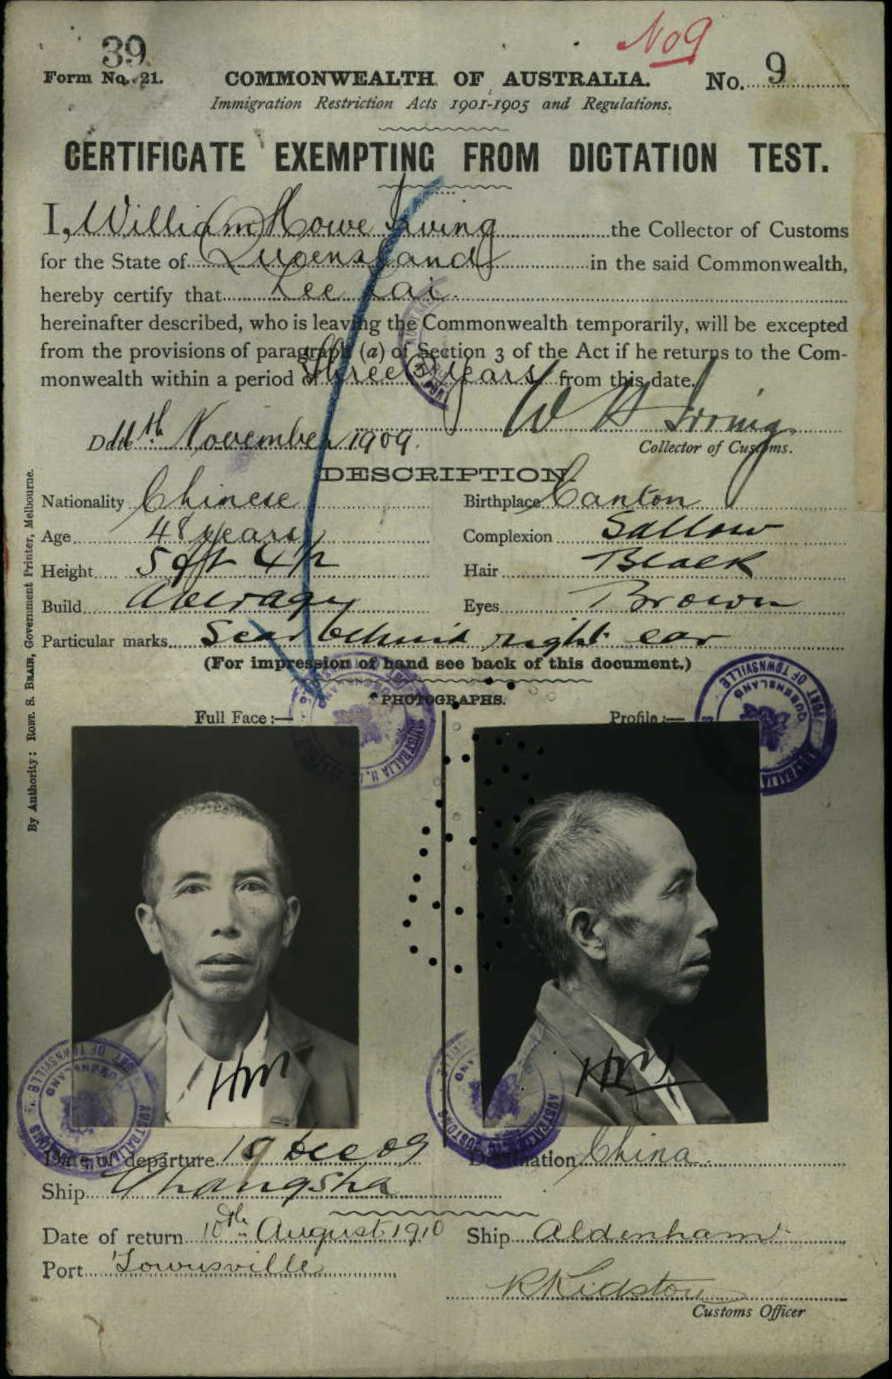 39
No 9
Form No. 21. COMMONWEALTH OF AUSTRALIA. No. 9
Immigration Restriction Acts 1901-1905 and Regulations.
CERTIFICATE EXEMPTING FROM DICTATION TEST.
I, William Howe Irving the Collector of Customs
for the State of Queensland in the said Commonwealth,
hereby certify that Lee Lai
hereinafter described, who is leaving the Commonwealth temporarily, will be excepted
from the provisions of paragraph (a) of Section 3 of the Act if he returns to the Com-
monwealth within a period of Three (3) years from this date.
W H Irving
November 1909.
Collector of Customs.
DESCRIPTION.
Nationality Chinese Birthplace Canton
Age 48 years Complexion Sallow
Height 5 ft 4 1/2 Hair Black
Build Average Eyes Brown
Particular marks Scar behind right ear
(For impression of hand see back of this document.)
PHOTOGRAPHS.
Full Face:— Profile:—
PORT OF TOWNSVILLE
QUEENSLAND
AUSTRALIA
HM
HM
Date of departure Dec 09 Destination China
Ship Changsha
Date of return 10th August 1910 Ship Aldenham
Port Townsville
R Kidston
Customs Officer
By Authority: ROBT. S. BRAIN, Government Printer, Melbourne.